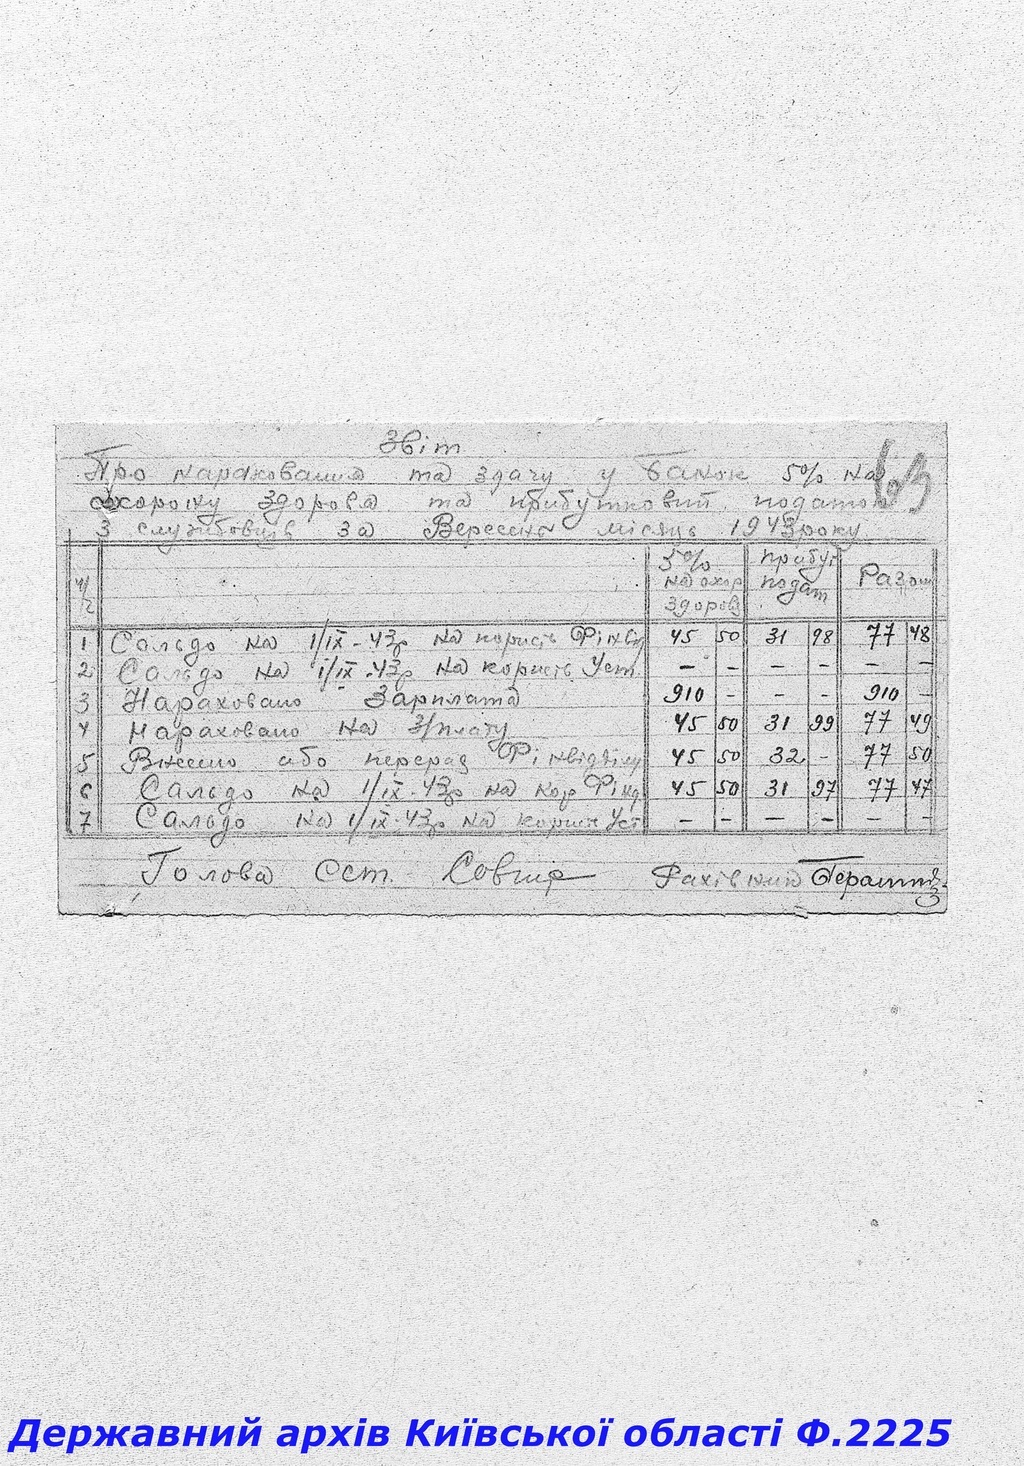 Звіт
Про нараховання та здачу у банок 5% на
охорону здоровя та прибутковий податок
З службовців за Вересень місяць 1943 року
63
ч/ч 5% на охор здоровя прибут подат Разом
1 Сальдо на 1/IX-43р на користь Фінвід 45 50 31 98 77 48
2 Сальдо на 1/IX-43р на користь Уст. — — — — — —
3 Нараховано Зарплата 910 - - - 910 -
4 Нараховано на З/плату 45 50 31 99 77 49
5 Внесено або перерах Фінвідділу 45 50 32 - 77 50
6 Сальдо на 1/IX-43р на кор Фінд 45 50 31 97 77 47
7 Сальдо на 1/IX-43р на корист Уст — — — — — —
Голова Сст. Фахівник
Державний архів Київської області Ф.2225